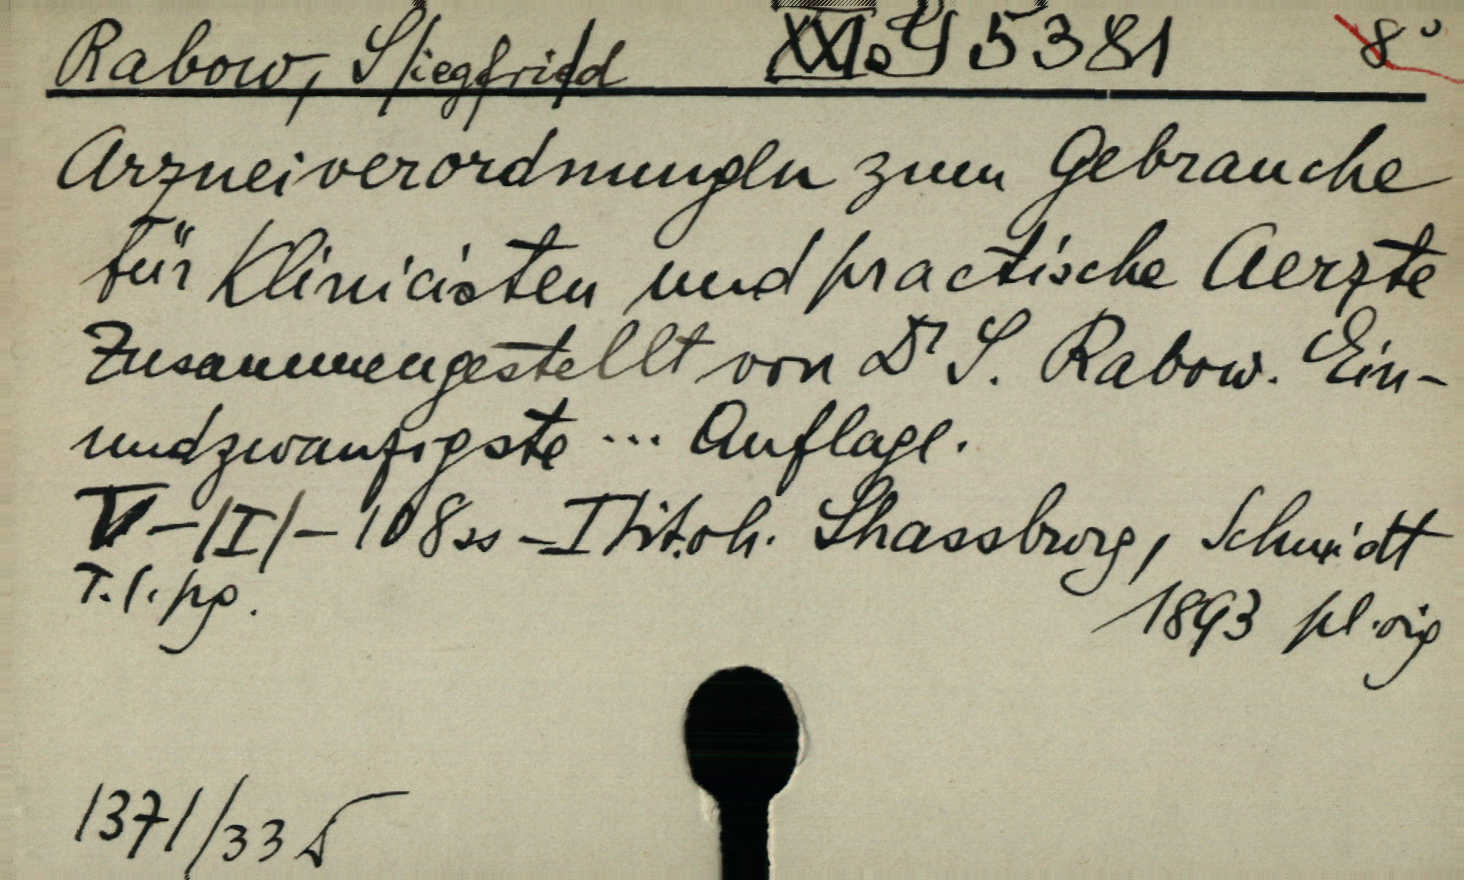 Rabow, S/iegfri/d XXI. 5381 8°
Arzneiverordnungen zum Gebrauche
für Klinicisten und practische Aerzte
Zusammengestellt von Dr S. Rabow. Ein-
undzwanzigste ... Auflage.
V-/I/-108 ss - I Strassburg, Schmidt
T. l. pg. 1893 pl. orig
1371/33